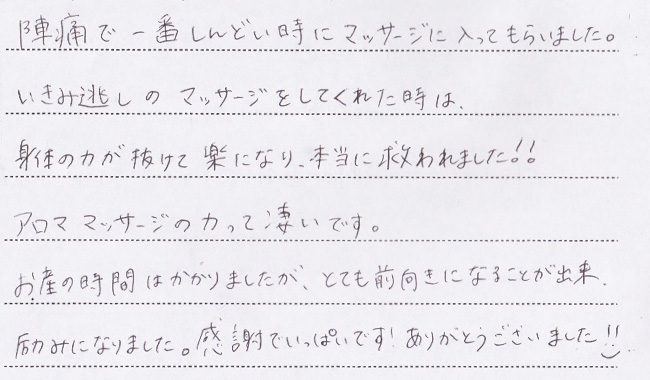 陣痛で一番しんどい時にマッサージに入ってもらいました。
いきみ逃しのマッサージをしてくれた時は、
身体の力が抜けて楽になり、本当に救われました!!
アロママッサージの力って凄いです。
お産の時間はかかりましたが、とても前向きになることが出来、
励みになりました。感謝でいっぱいです!ありがとうございました!!